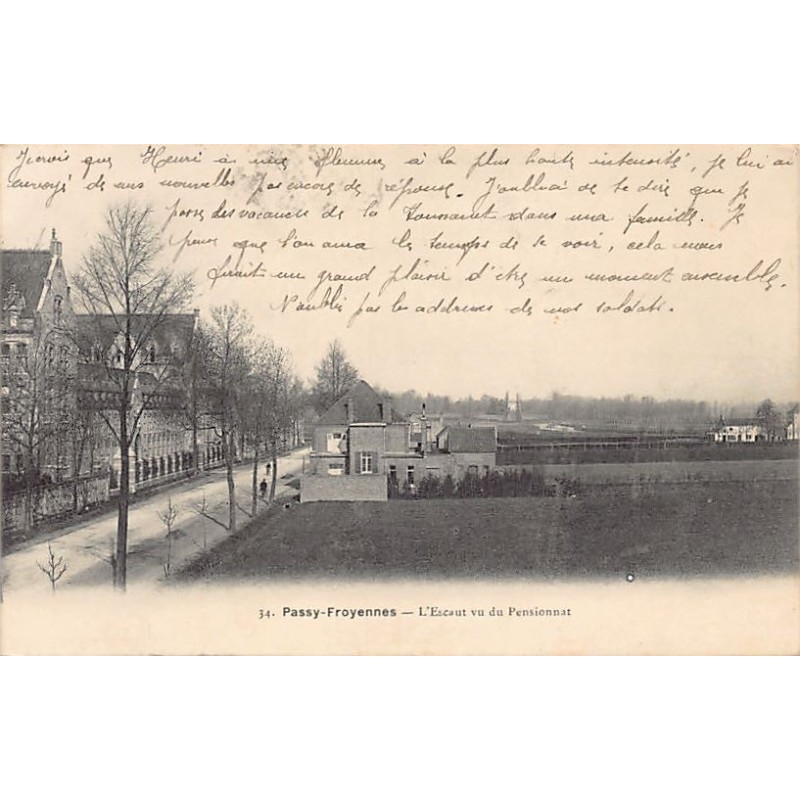 Je crois que Henri a une flemme à la plus haute intensité, je lui ai
envoyé de mes nouvelles pas encore de réponse. J'oubliai de te dire que je
passe des vacances de la Toussaint dans une famille. Je
pense que l'on aura le temps de se voir, cela nous
fruit un grand plaisir d'être un moment ensemble.
N'oublie pas les addresses de nos soldats.
34. Passy-Froyennes — L'Escaut vu du Pensionnat